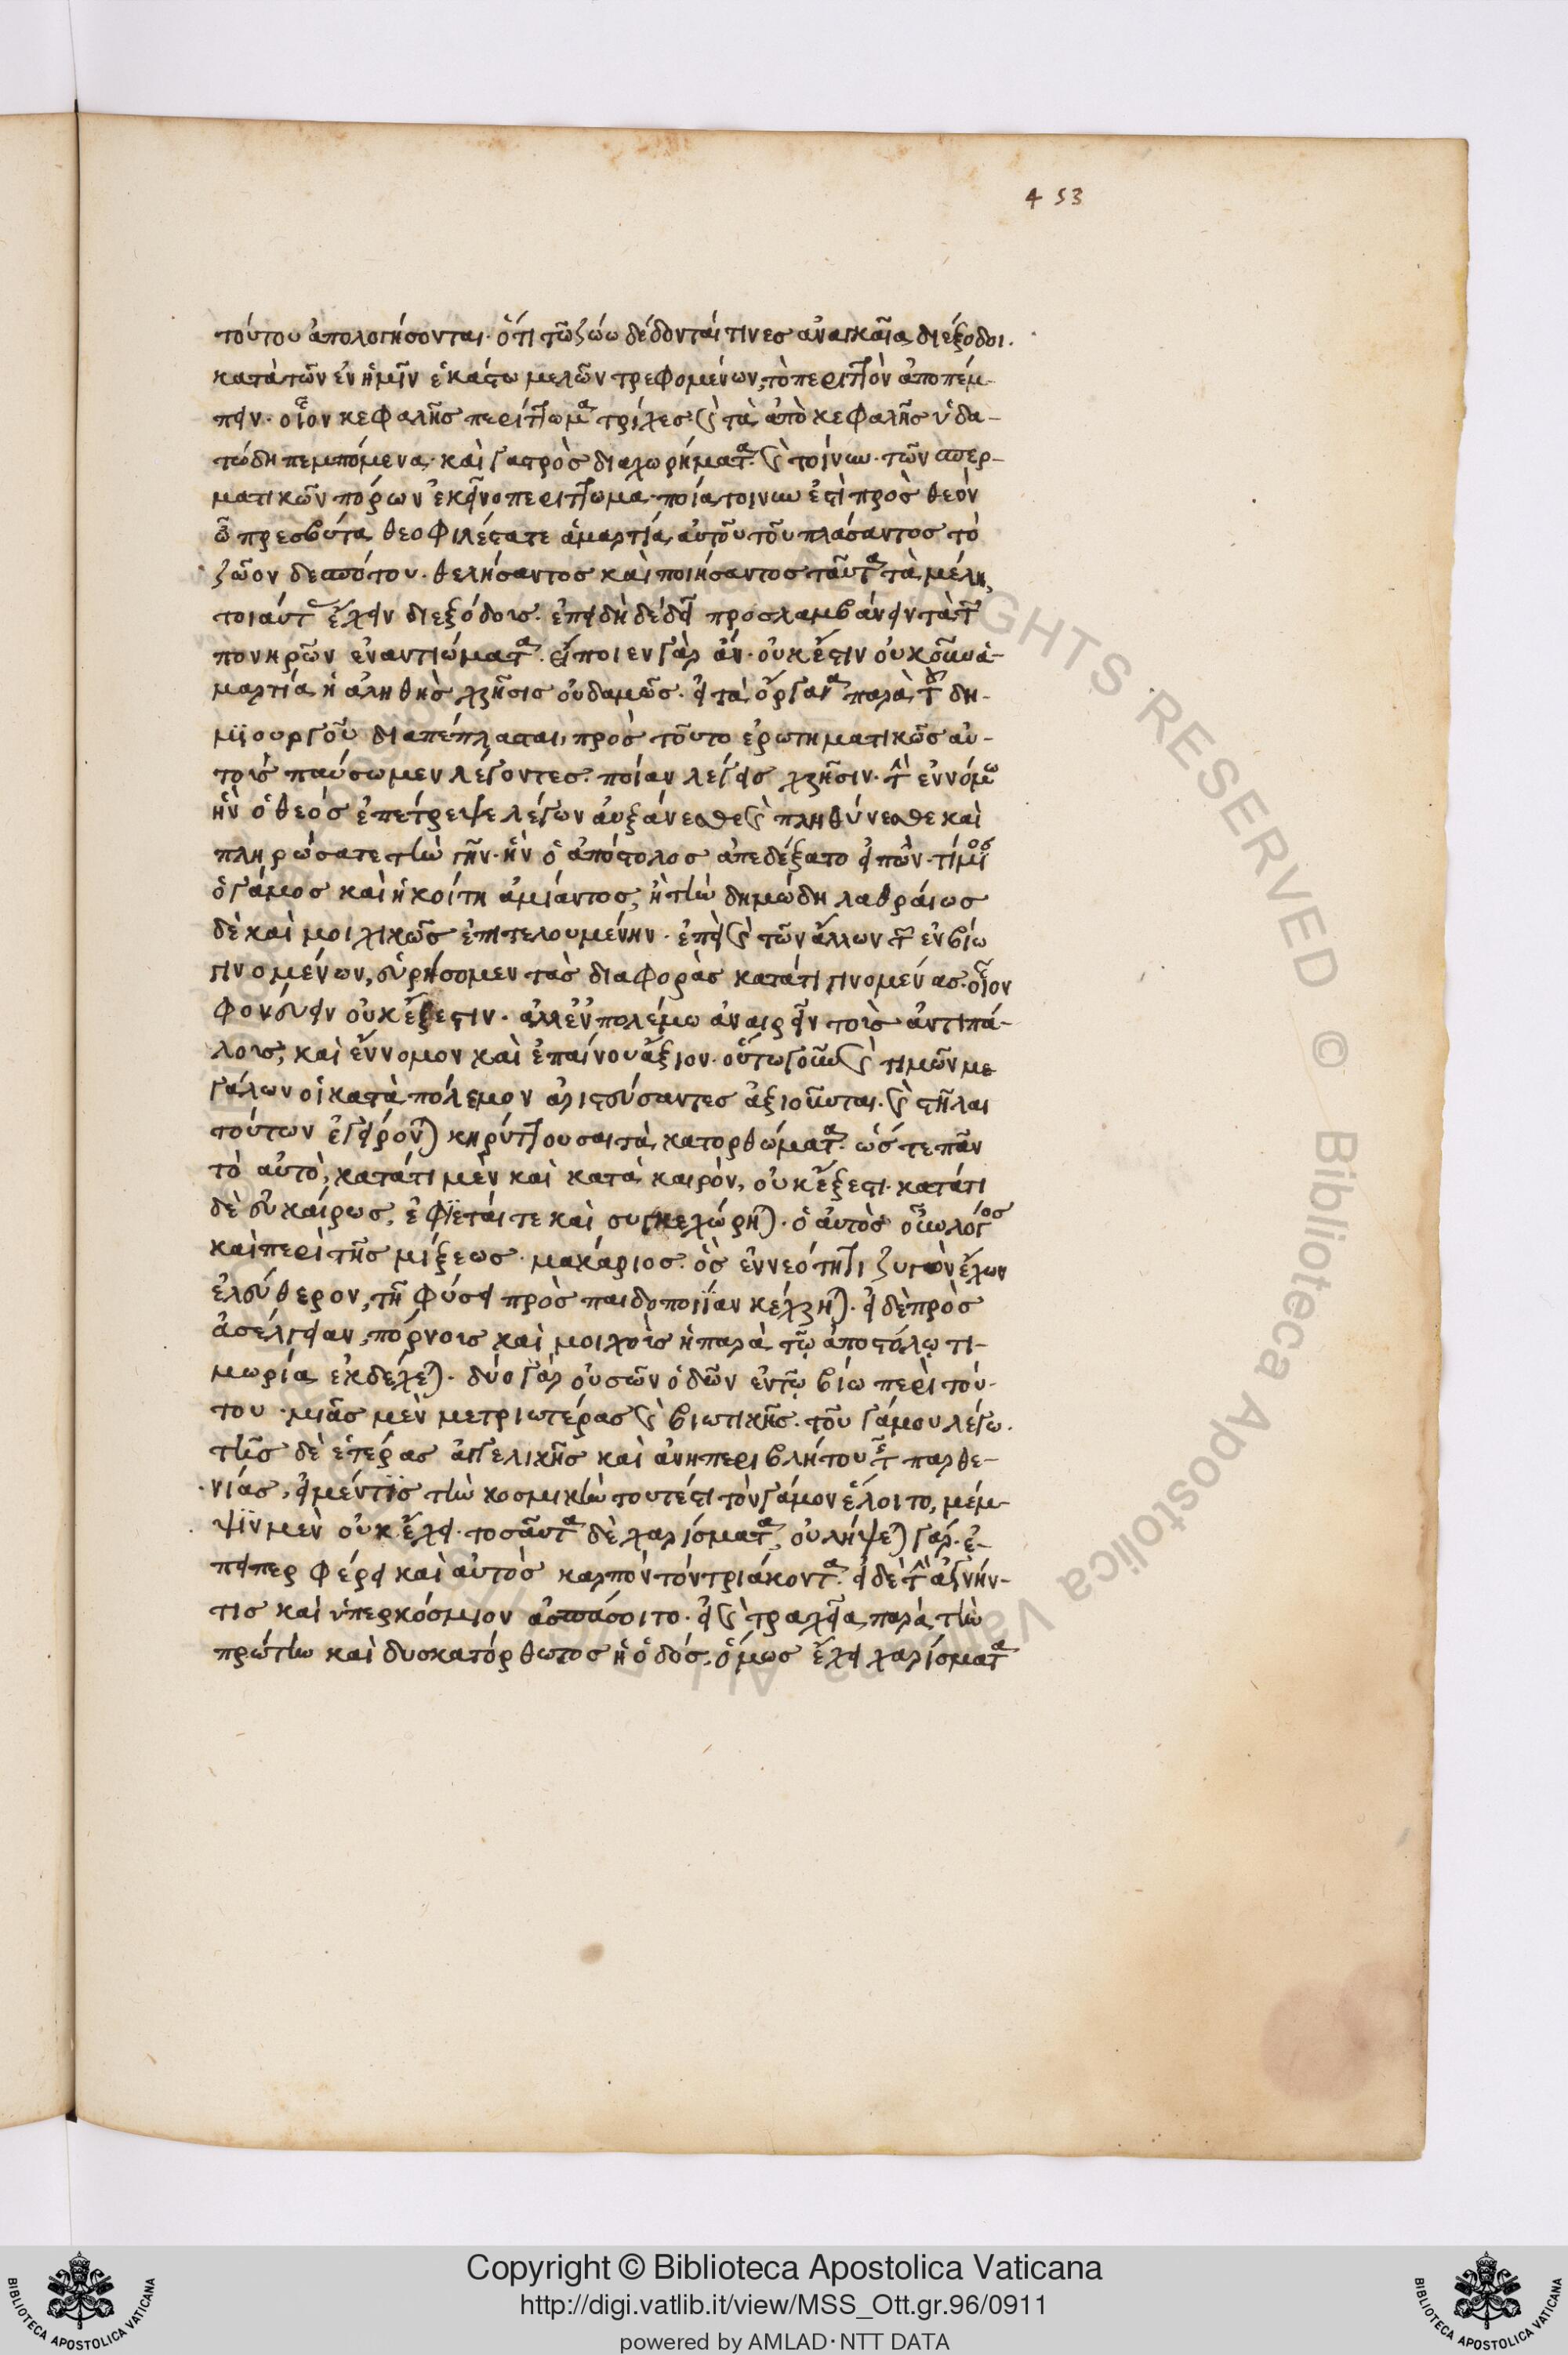 453
τούτου ἀπολογήσονται· ὅτι τῶ ζώω δέδονταί τινες ἀναγκαῖαι διέξοδοι·
κατὰ τῶν ἐν ἡμῖν ἑκάστω μελῶν τρεφομένων, τὸ περιττὸν ἀποπέμ-
πειν· οἷον κεφαλῆς περίττωμα τρίχες καὶ τὰ ἀπὸ κεφαλῆς ὑδα-
τώδη πεμπόμενα· καὶ γαστρὸς διαχωρήματα· καὶ τοίνυν τῶν σπερ-
ματικῶν πόρων ἐκεῖνο περίττωμα· ποία τοίνυν ἐστὶ πρὸς θεὸν
ὦ πρεσβύτα θεοφιλέστατε ἁμαρτία, αὐτοῦ τοῦ πλάσαντος τὸ
ζῶον δεσπότου· θελήσαντος καὶ ποιήσαντος ταῦτα τὰ μέλη
τοιαύτας ἔχειν διεξόδους· ἐπειδὴ δὲ δεῖ προσλαμβάνειν τὰ τῶν
πονηρῶν ἐναντιώματα· εἴποιεν γὰρ ἄν· οὐκ ἔστιν οὐκοῦν ἁ-
μαρτία ἡ ἀληθὴς χρῆσις οὐδαμῶς· εἰ τὰ ὄργανα παρὰ τοῦ δη-
μϊουργοῦ διαπέπλασται, πρὸς τοῦτο ἐρωτηματικῶς αὐ-
τοὺς παύσωμεν λέγοντες· ποίαν λέγεις χρῆσιν· τὴν ἐννόμως
ἣν ὁ θεὸς ἐπέτρεψε λέγων αὐξάνεσθε καὶ πληθύνεσθε καὶ
πληρώσατε τὴν γῆν· ἣν ὁ ἀπόστολος ἀπεδέξατο εἰπὼν· τίμϊος
ὁ γάμος καὶ ἡ κοίτη ἀμίαντος, ἢ τὴν δημώδη λαθραίως
δὲ καὶ μοιχικῶς ἐπιτελουμένην· ἐπεὶ καὶ τῶν ἄλλων τῶν ἐν βίω
γινομένων, εὑρήσομεν τὰς διαφορὰς κατά τι γινομένας· οἷον
φονεύειν οὐκ ἔξεστιν· ἀλλ' ἐν πολέμω ἀναιρεῖν τοὺς ἀντιπά-
λους, καὶ ἔννομον καὶ ἐπαίνου ἄξιον· οὕτω γοῦν καὶ τιμῶν με
γάλων οἱ κατὰ πόλεμον ἀριστεύσαντες ἀξιοῦνται· καὶ στῆλαι
τούτων ἐγείρονται κηρύττουσαι τὰ κατορθώματα· ὥστε πᾶν
τὸ αὐτὸ, κατά τι μὲν καὶ κατὰ καιρὸν, οὐκ ἔξεστι· κατά τι
δὲ εὐκαίρως, ἐφΐεταί τε καὶ συγκεχώρηται· ὁ αὐτὸς οὖν λόγος
καὶ περὶ τῆς μίξεως· μακάριος· ὃς ἐν νεότητι ζυγὸν ἔχων
ἐλεύθερον, τῆ φύσει πρὸς παιδοποιΐαν κέχρηται· εἰ δὲ πρὸς
ἀσέλγειαν, πόρνοις καὶ μοιχοῖς ἡ παρὰ τῷ ἀποστόλῳ τι-
μωρία ἐκδέχεται· δύο γὰρ οὐσῶν ὁδῶν ἐν τῷ βίω περὶ τού-
του· μιᾶς μὲν μετριωτέρας καὶ βιωτικῆς· τοῦ γάμου λέγω·
τῆς δὲ ἑτέρας ἀγγελικῆς καὶ ἀνηπερβλήτου τῆς παρθε-
νίας, εἰ μέν τϊς τὴν κοσμικὴν τουτέστι τὸν γάμον ἕλοιτο, μέμ-
ψϊν μὲν οὐκ ἔχει· τοσαῦτα δὲ χαρίσματα, οὐ λήψεται γάρ· ἐ-
πείπερ φέρει καὶ αὐτὸς καρπὸν τὸν τριάκοντα· εἰ δὲ τὴν ἁγνήν
τις καὶ ὑπερκόσμιον ἀσπάσοιτο· εἰ καὶ τραχεῖα παρὰ τὴν
πρώτην καὶ δυσκατόρθωτος ἡ ὁδός, ὅμως ἔχει χαρίσματα
Copyright © Biblioteca Apostolica Vaticana
http://digi.vatlib.it/view/MSS_Ott.gr.96/0911
powered by AMLAD·NTT DATA
BIBLIOTECA APOSTOLICA VATICANA
BIBLIOTECA APOSTOLICA VATICANA